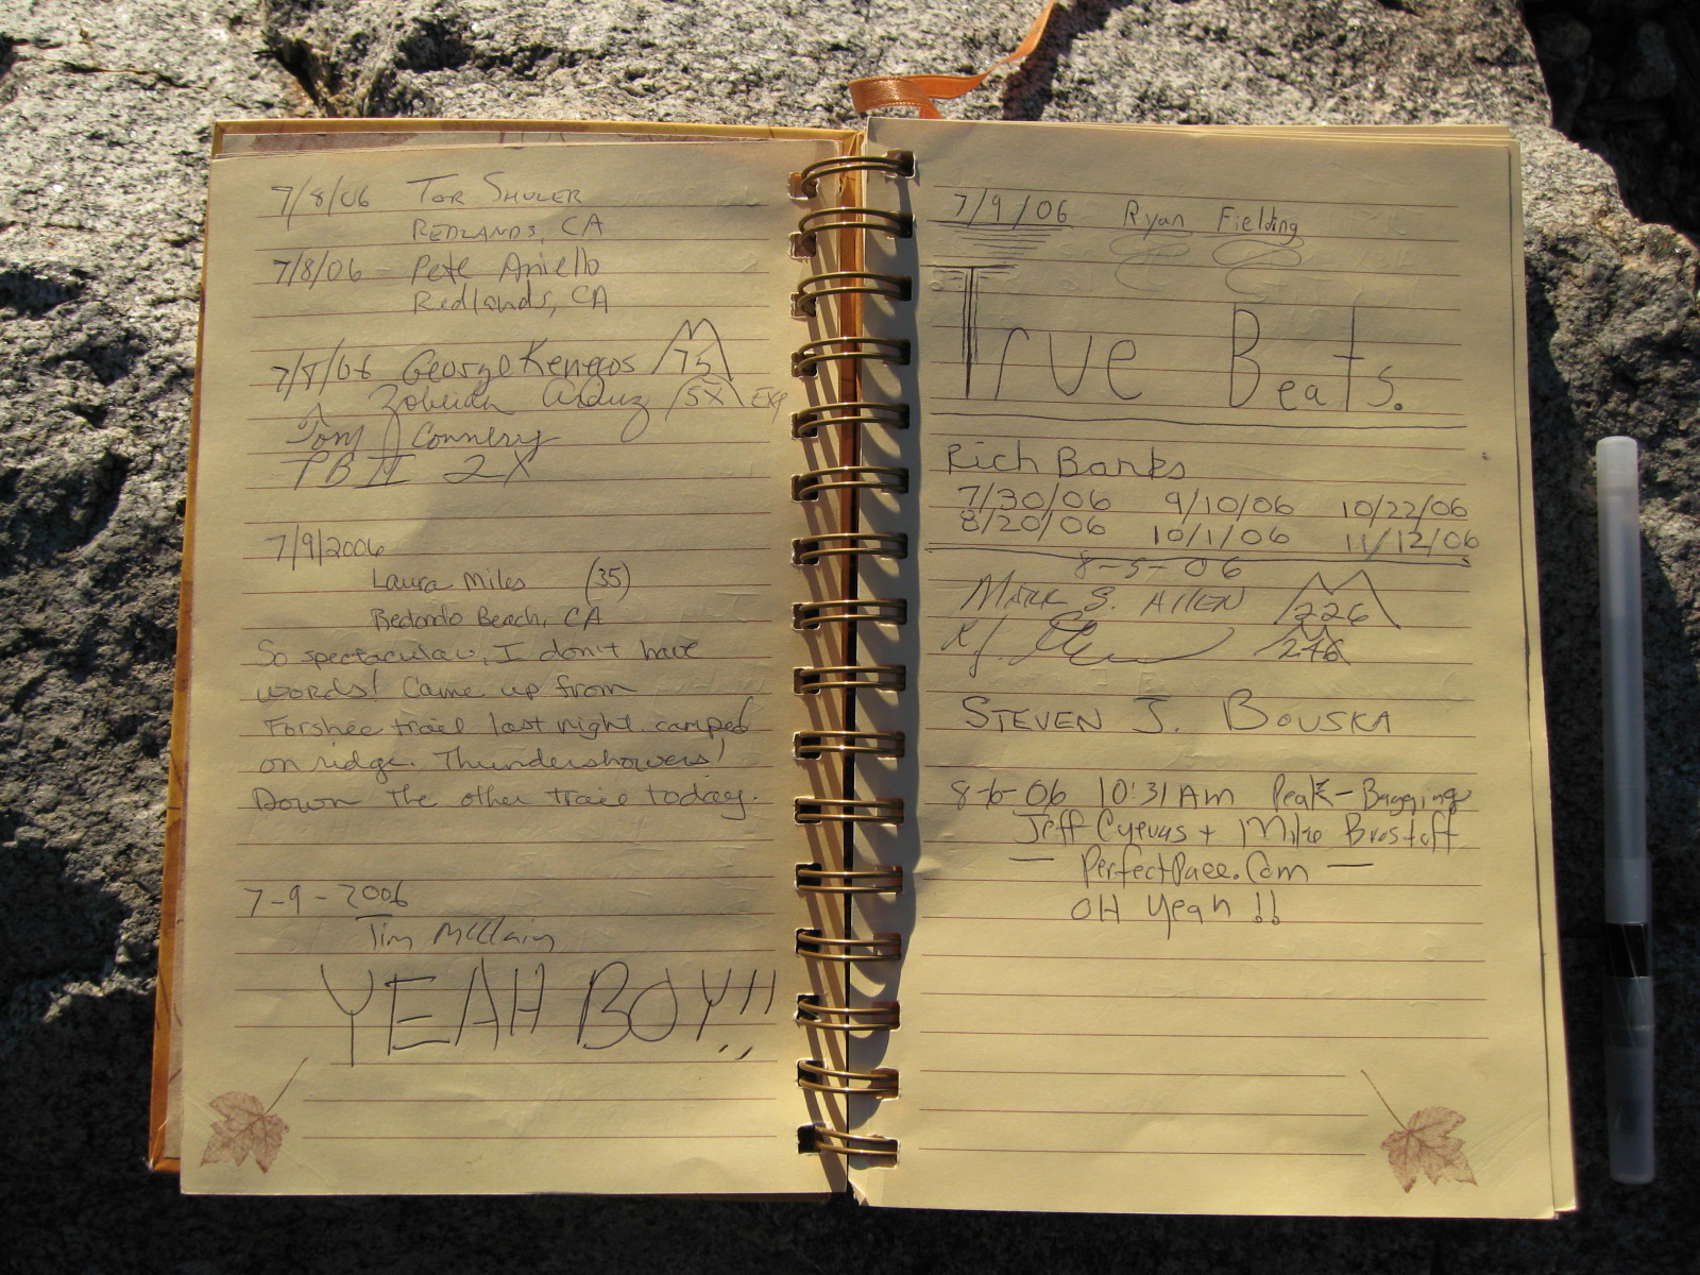 7/8/06 TOR SHULER
REDLANDS, CA
7/8/06 Pete Aniello
Redlands, CA
7/8/06 George Kenegos 75
5X EXP
Tom Connery
PB II 2X
7/9/2006
Laura Miles (35)
Redondo Beach, CA
So spectacular, I don't have
words! Came up from
Forshee trail last night. camped
on ridge. Thundershowers!
Down the other trail today.
7-9-2006
Tim McClain
YEAH BOY!!
7/9/06 Ryan Fielding
True Beats.
Rich Banks
7/30/06 9/10/06 10/22/06
8/20/06 10/1/06 11/12/06
8-5-06
MARK S. ALLEN 226
246
STEVEN J. BOUSKA
8-6-06 10:31 AM Peak-Bagging
Jeff Cuevas + Mike Brostoff
— PerfectPace.Com —
OH Yeah!!